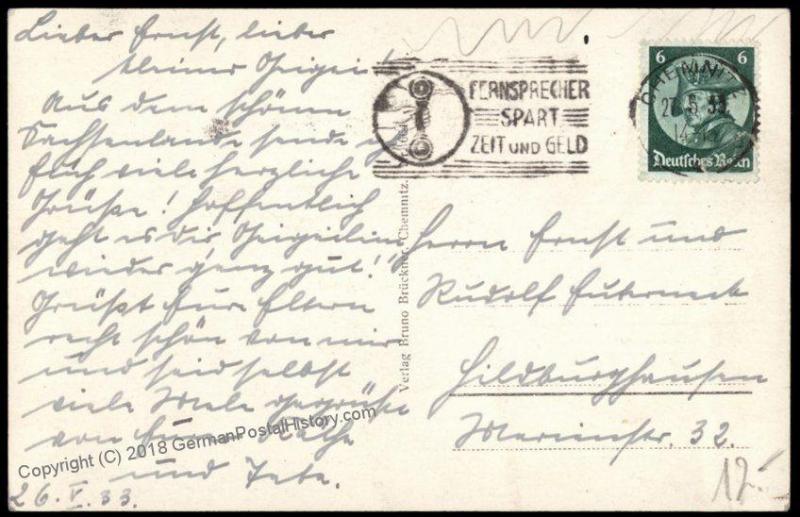 Lieber Ernst, lieber
kleiner
Aus dem schönen
Sachsenlande sende
viele herzliche
Grüße! Hoffentlich
geht es dir
wieder ganz gut!
Grüßt Eure Eltern
recht schön von mir
und seid selbst
viele Male gegrüßt
von Käthe
und
26.V.33.
FERNSPRECHER
SPART
ZEIT UND GELD
CHEMNITZ
6 6
Deutsches Reich
Verlag Bruno Brückner, Chemnitz.
Herrn Ernst und
Rudolf
Hildburghausen
32.
12.-
Copyright (C) 2018 GermanPostalHistory.com